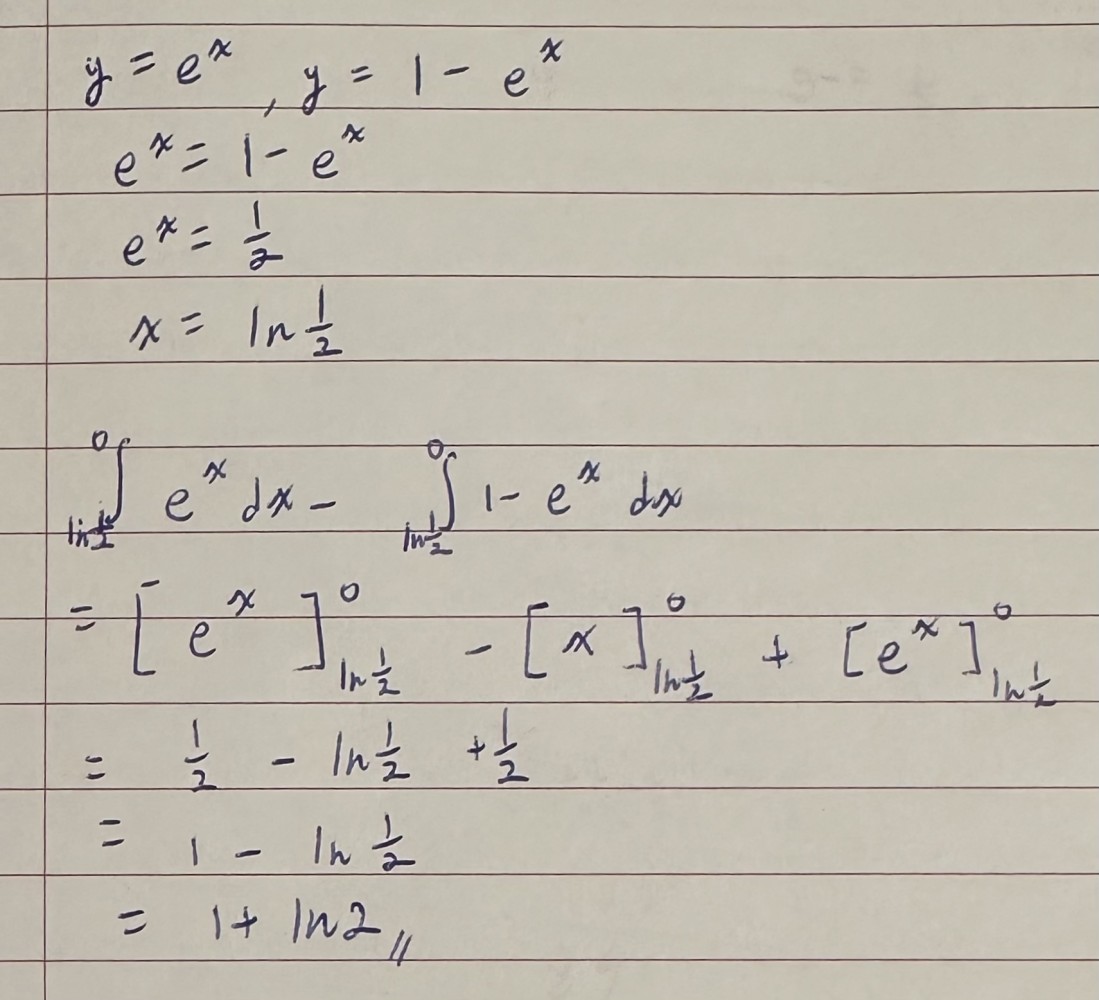 y = e^x , y = 1 - e^x
e^x = 1 - e^x
e^x = 1/2
x = ln 1/2
∫_{ln 1/2}^{0} e^x dx - ∫_{ln 1/2}^{0} 1 - e^x dx
= [ e^x ]_{ln 1/2}^{0} - [ x ]_{ln 1/2}^{0} + [ e^x ]_{ln 1/2}^{0}
= 1/2 - ln 1/2 + 1/2
= 1 - ln 1/2
= 1 + ln 2 //